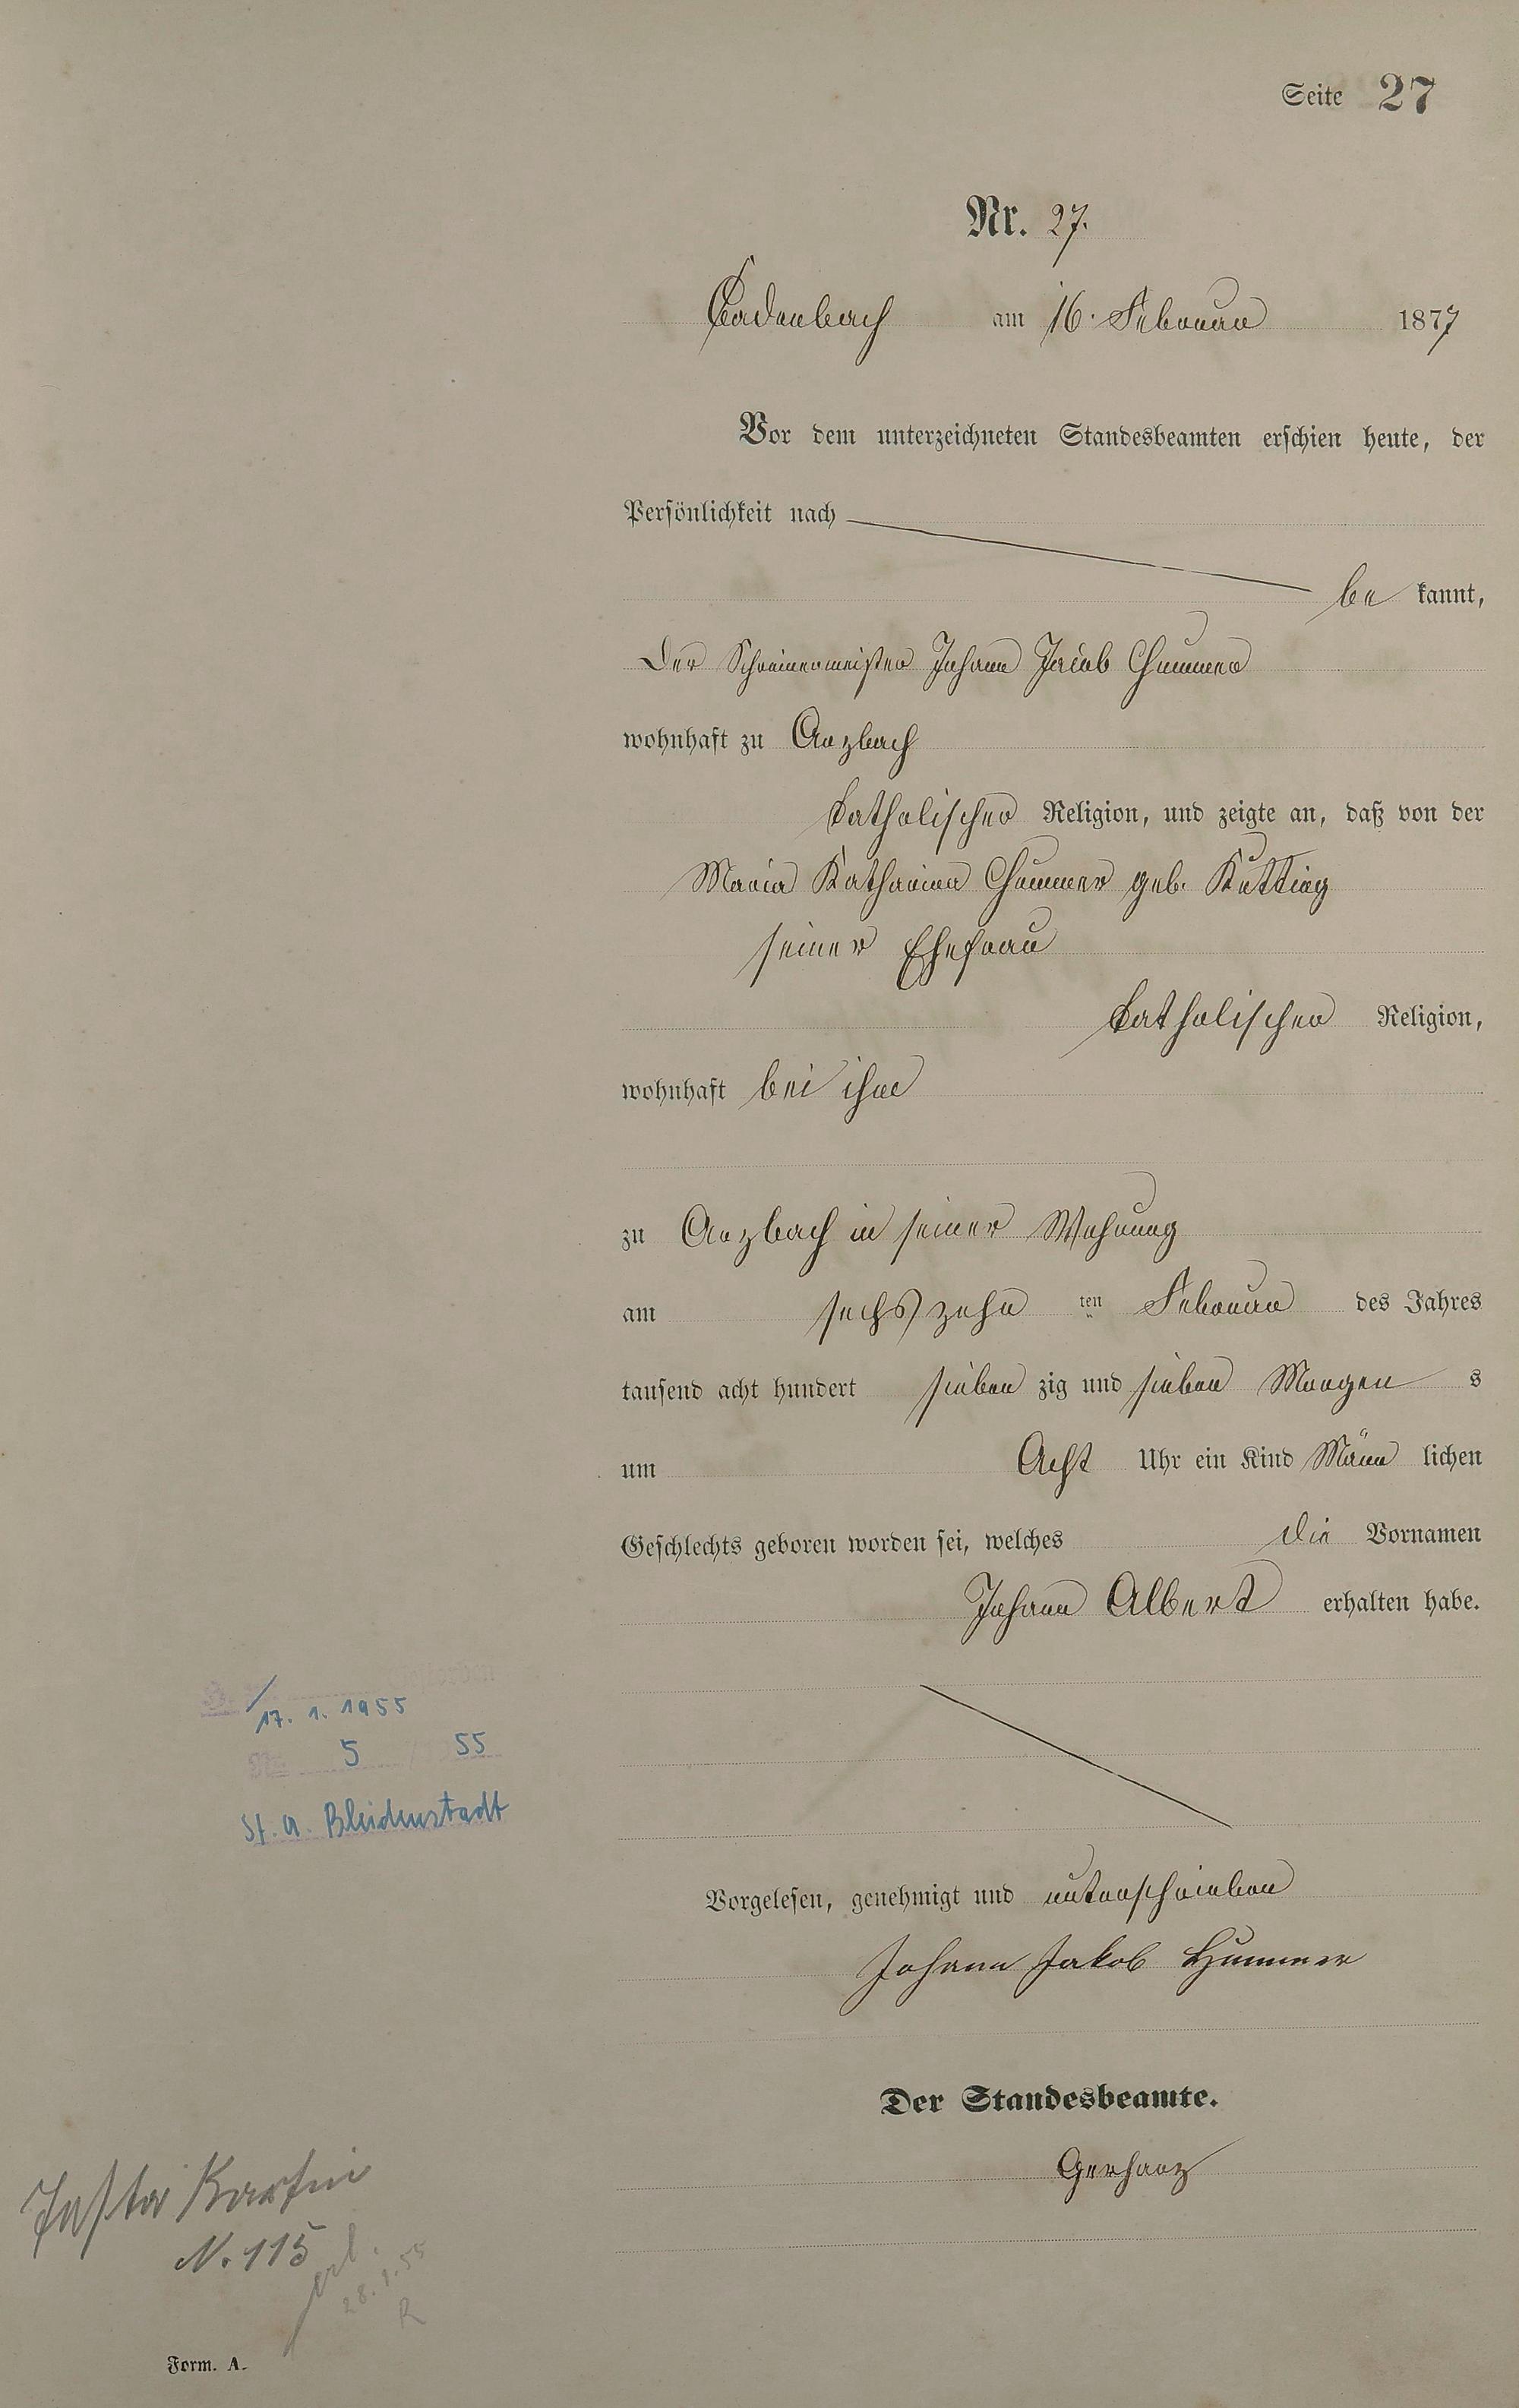 Seite 27
Nr. 27.
Cadenbach am 16. Februar 1877
Vor dem unterzeichneten Standesbeamten erschien heute, der
Persönlichkeit nach
be kannt,
der Schreinermeister Johann Jacob Hummer
wohnhaft zu Arzbach
katholischer Religion, und zeigte an, daß von der
Maria Katharina Hummer geb. Kutting
seiner Ehefrau
katholischer Religion,
wohnhaft bei ihm
zu Arzbach in seiner Wohnung
am sechszehn ten Februar des Jahres
tausend acht hundert sieben zig und sieben Morgen s
um Acht Uhr ein Kind Männ lichen
Geschlechts geboren worden sei, welches die Vornamen
Johann Albert erhalten habe.
17. 1. 1955
5 / 55
St. A. Bleidenstadt
Vorgelesen, genehmigt und unterschrieben
Johann Jakob Hummer
Der Standesbeamte.
Gerharz
N. 115
erl.
28.1.55
R
Form. A.